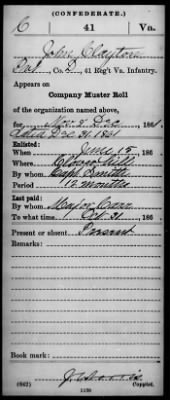 (CONFEDERATE.)
C 41 Va.
John Clayton
Pvt, Co. D, 41 Reg't Va. Infantry.
Appears on
Company Muster Roll
of the organization named above,
for Nov. & Dec 186 .
dated Dec 31 1861
Enlisted:
When June 15, 186 .
Where
By whom Capt Smith
Period 12 months
Last paid:
By whom Major Carr
To what time Oct. 31, 186 .
Present or absent Present
Remarks:
Book mark:
(642) Copyist.